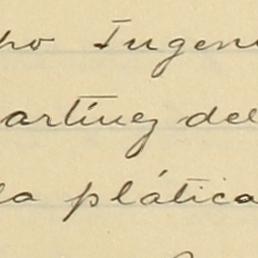 po Eugeni
artínez del
la plática